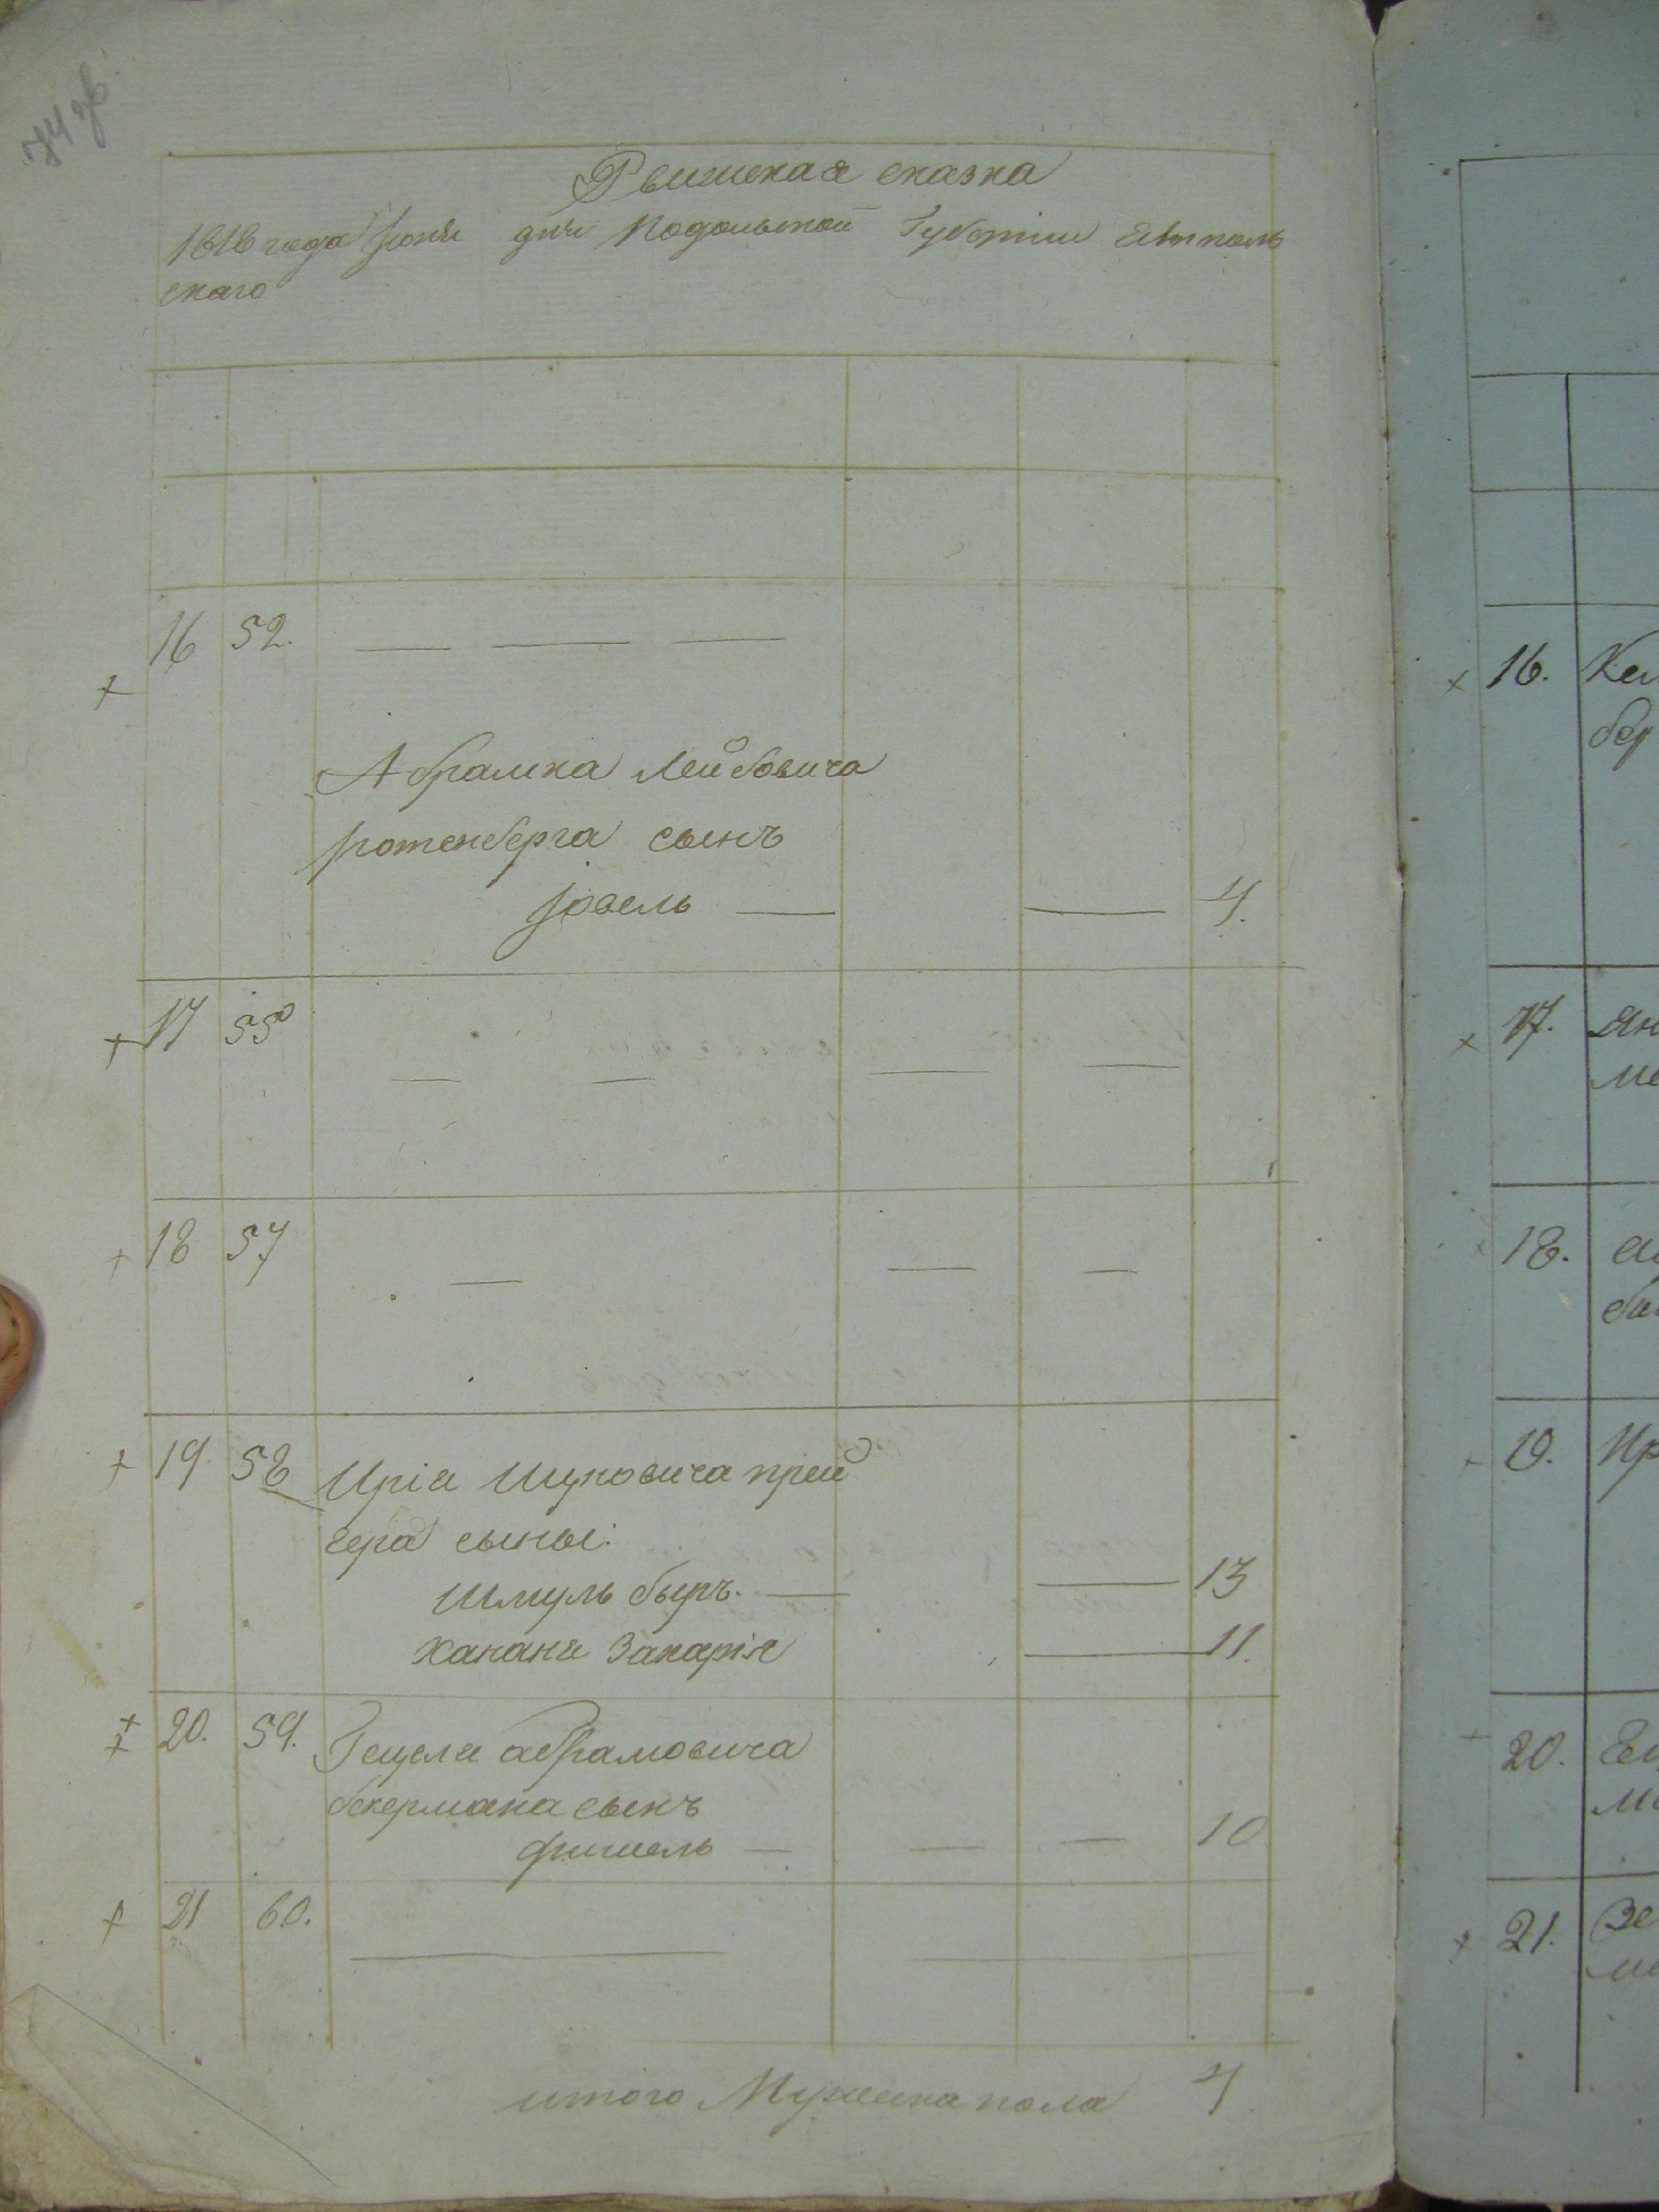 74 об.
Ревижская сказка
1818 года Июня дня Подольской Губернiи Ямполь
скаго
16 52. — — —
Абрамка Лейбовича
ротенберга сынъ
Iовель — — 4.
17 55 — — — —
18 57 — — —
19. 58 Ирiя Шуловича прей
гера сыны:
Шмуль быръ. — — 13
Хананя Захарiя — 11.
20. 59. Гецеля абрамовича
бекермана сынъ
фишель — — — 10
21 60. — —
итого Мужеска пола 4.
16. Кел
бер
17. Ян
ме
18.
19. Ир
20.
21. Зе